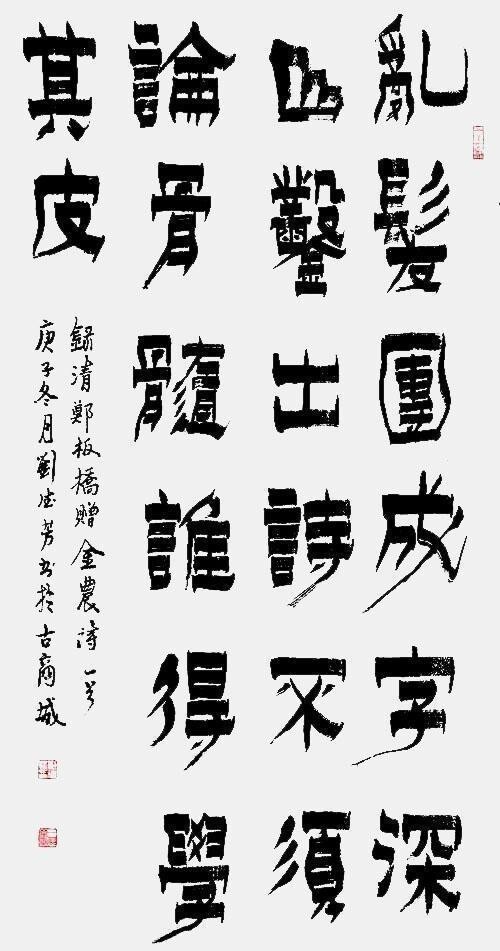 亂髮團成字深
山鑿出詩不須
論骨髓誰得學
其皮
錄清鄭板橋贈金農詩一首
庚子冬月劉德芳书於古商城